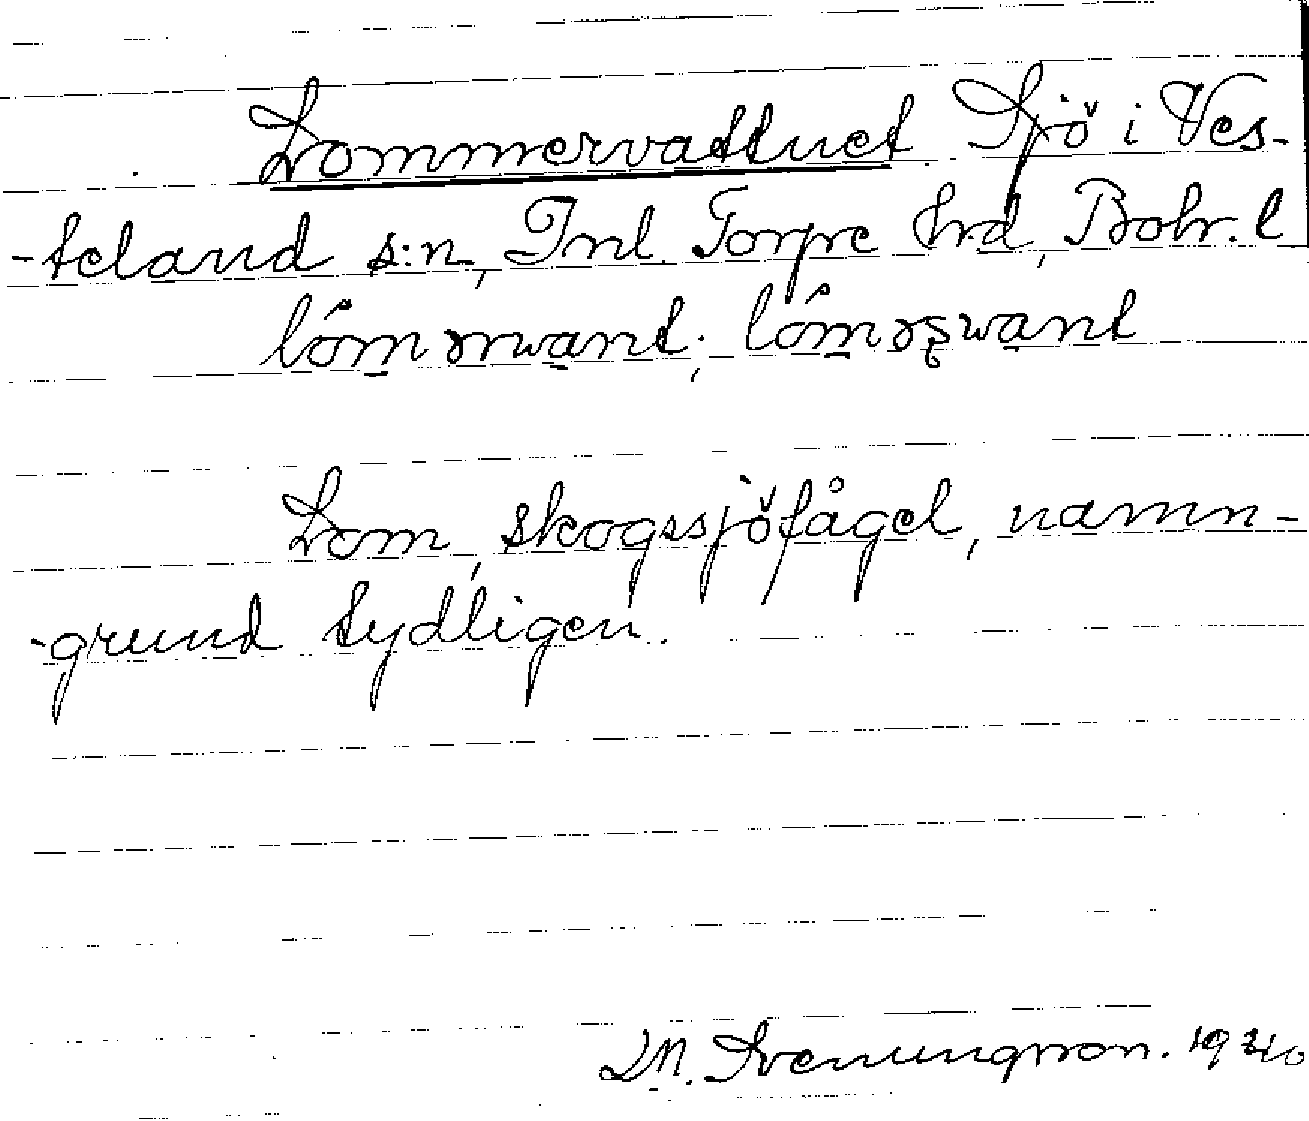 Lommervattnet. Sjö i Ves-
-teland s:n, Inl. Torpe hrd, Bohr. l
Lom, skogssjöfågel, namn-
-grund tydligen.
M. Svenungsson. 1940